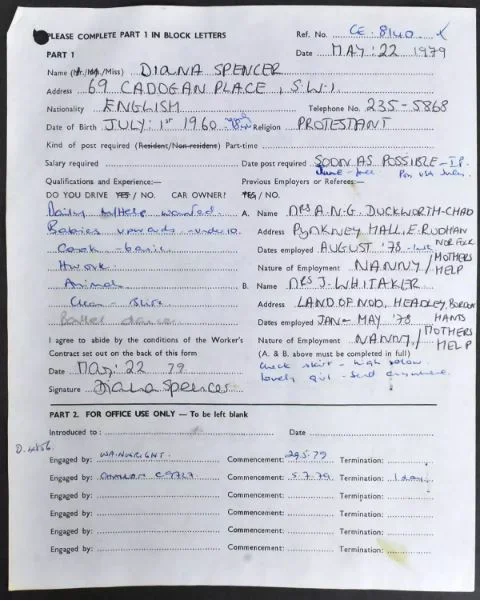 PLEASE COMPLETE PART 1 IN BLOCK LETTERS
Ref. No. CE - 8140
PART 1
Date MAY: 22 1979
Name (Mr./Mrs./Miss) DIANA SPENCER
Address 69 CADOGAN PLACE, S.W.1.
Nationality ENGLISH
Telephone No. 235-5868
Date of Birth JULY: 1st 1960
Religion PROTESTANT
Kind of post required (Resident/Non-resident) Part-time
Salary required
Date post required SOON AS POSSIBLE
Qualifications and Experience:—
Previous Employers or Referees:—
DO YOU DRIVE YES / NO. CAR OWNER? YES / NO.
Daily
Babies upwards - under 10.
Cook - basic
Hwork.
Animals
Clean
Ballet dance
A. Name MRS A.N.G. DUCKWORTH-CHAD
Address PYNKNEY HALL, E. RUDHAM
NORFOLK
Dates employed AUGUST '78
Nature of Employment NANNY / MOTHERS HELP
B. Name MRS J. WHITAKER
Address LAND OF NOD, HEADLEY, BORDON
HANTS
Dates employed JAN - MAY '78
Nature of Employment NANNY / MOTHERS HELP
(A. & B. above must be completed in full)
I agree to abide by the conditions of the Worker's
Contract set out on the back of this form
Check skirt - high
lovely girl - send anywhere.
Date May: 22 79
Signature Diana Spencer
PART 2. FOR OFFICE USE ONLY — To be left blank
Introduced to : Date
Engaged by: WAINWRIGHT. Commencement: 29.5.79 Termination:
Engaged by: Commencement: 5.7.79 Termination: 1 day
Engaged by: Commencement: Termination:
Engaged by: Commencement: Termination:
Engaged by: Commencement: Termination:
Engaged by: Commencement: Termination: